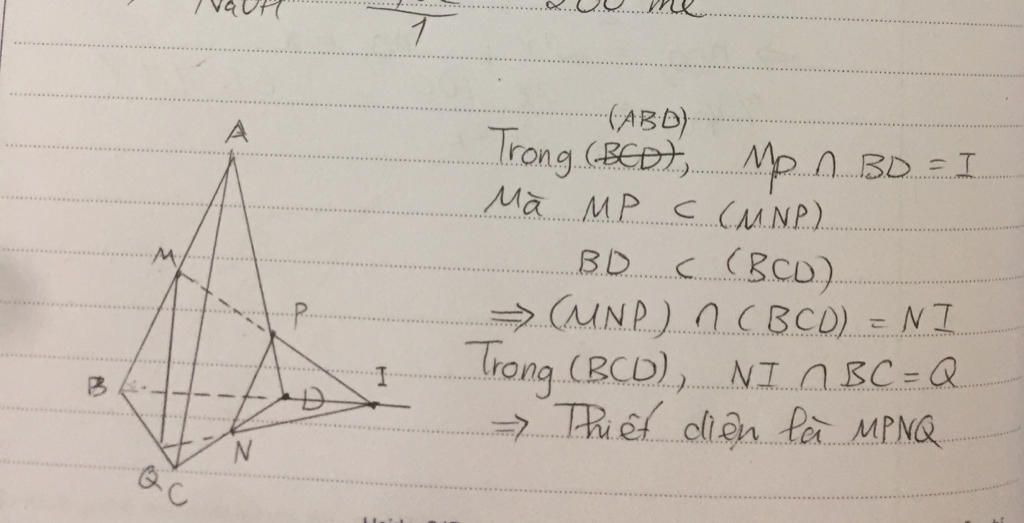 NaOH
1
200 ml
A
M
P
B
D
I
N
Q
C
(ABD)
Trong (BCD), MP ∩ BD = I
Mà MP ⊂ (MNP)
BD ⊂ (BCD)
⇒ (MNP) ∩ (BCD) = NI
Trong (BCD), NI ∩ BC = Q
⇒ Thiết diện là MPNQ